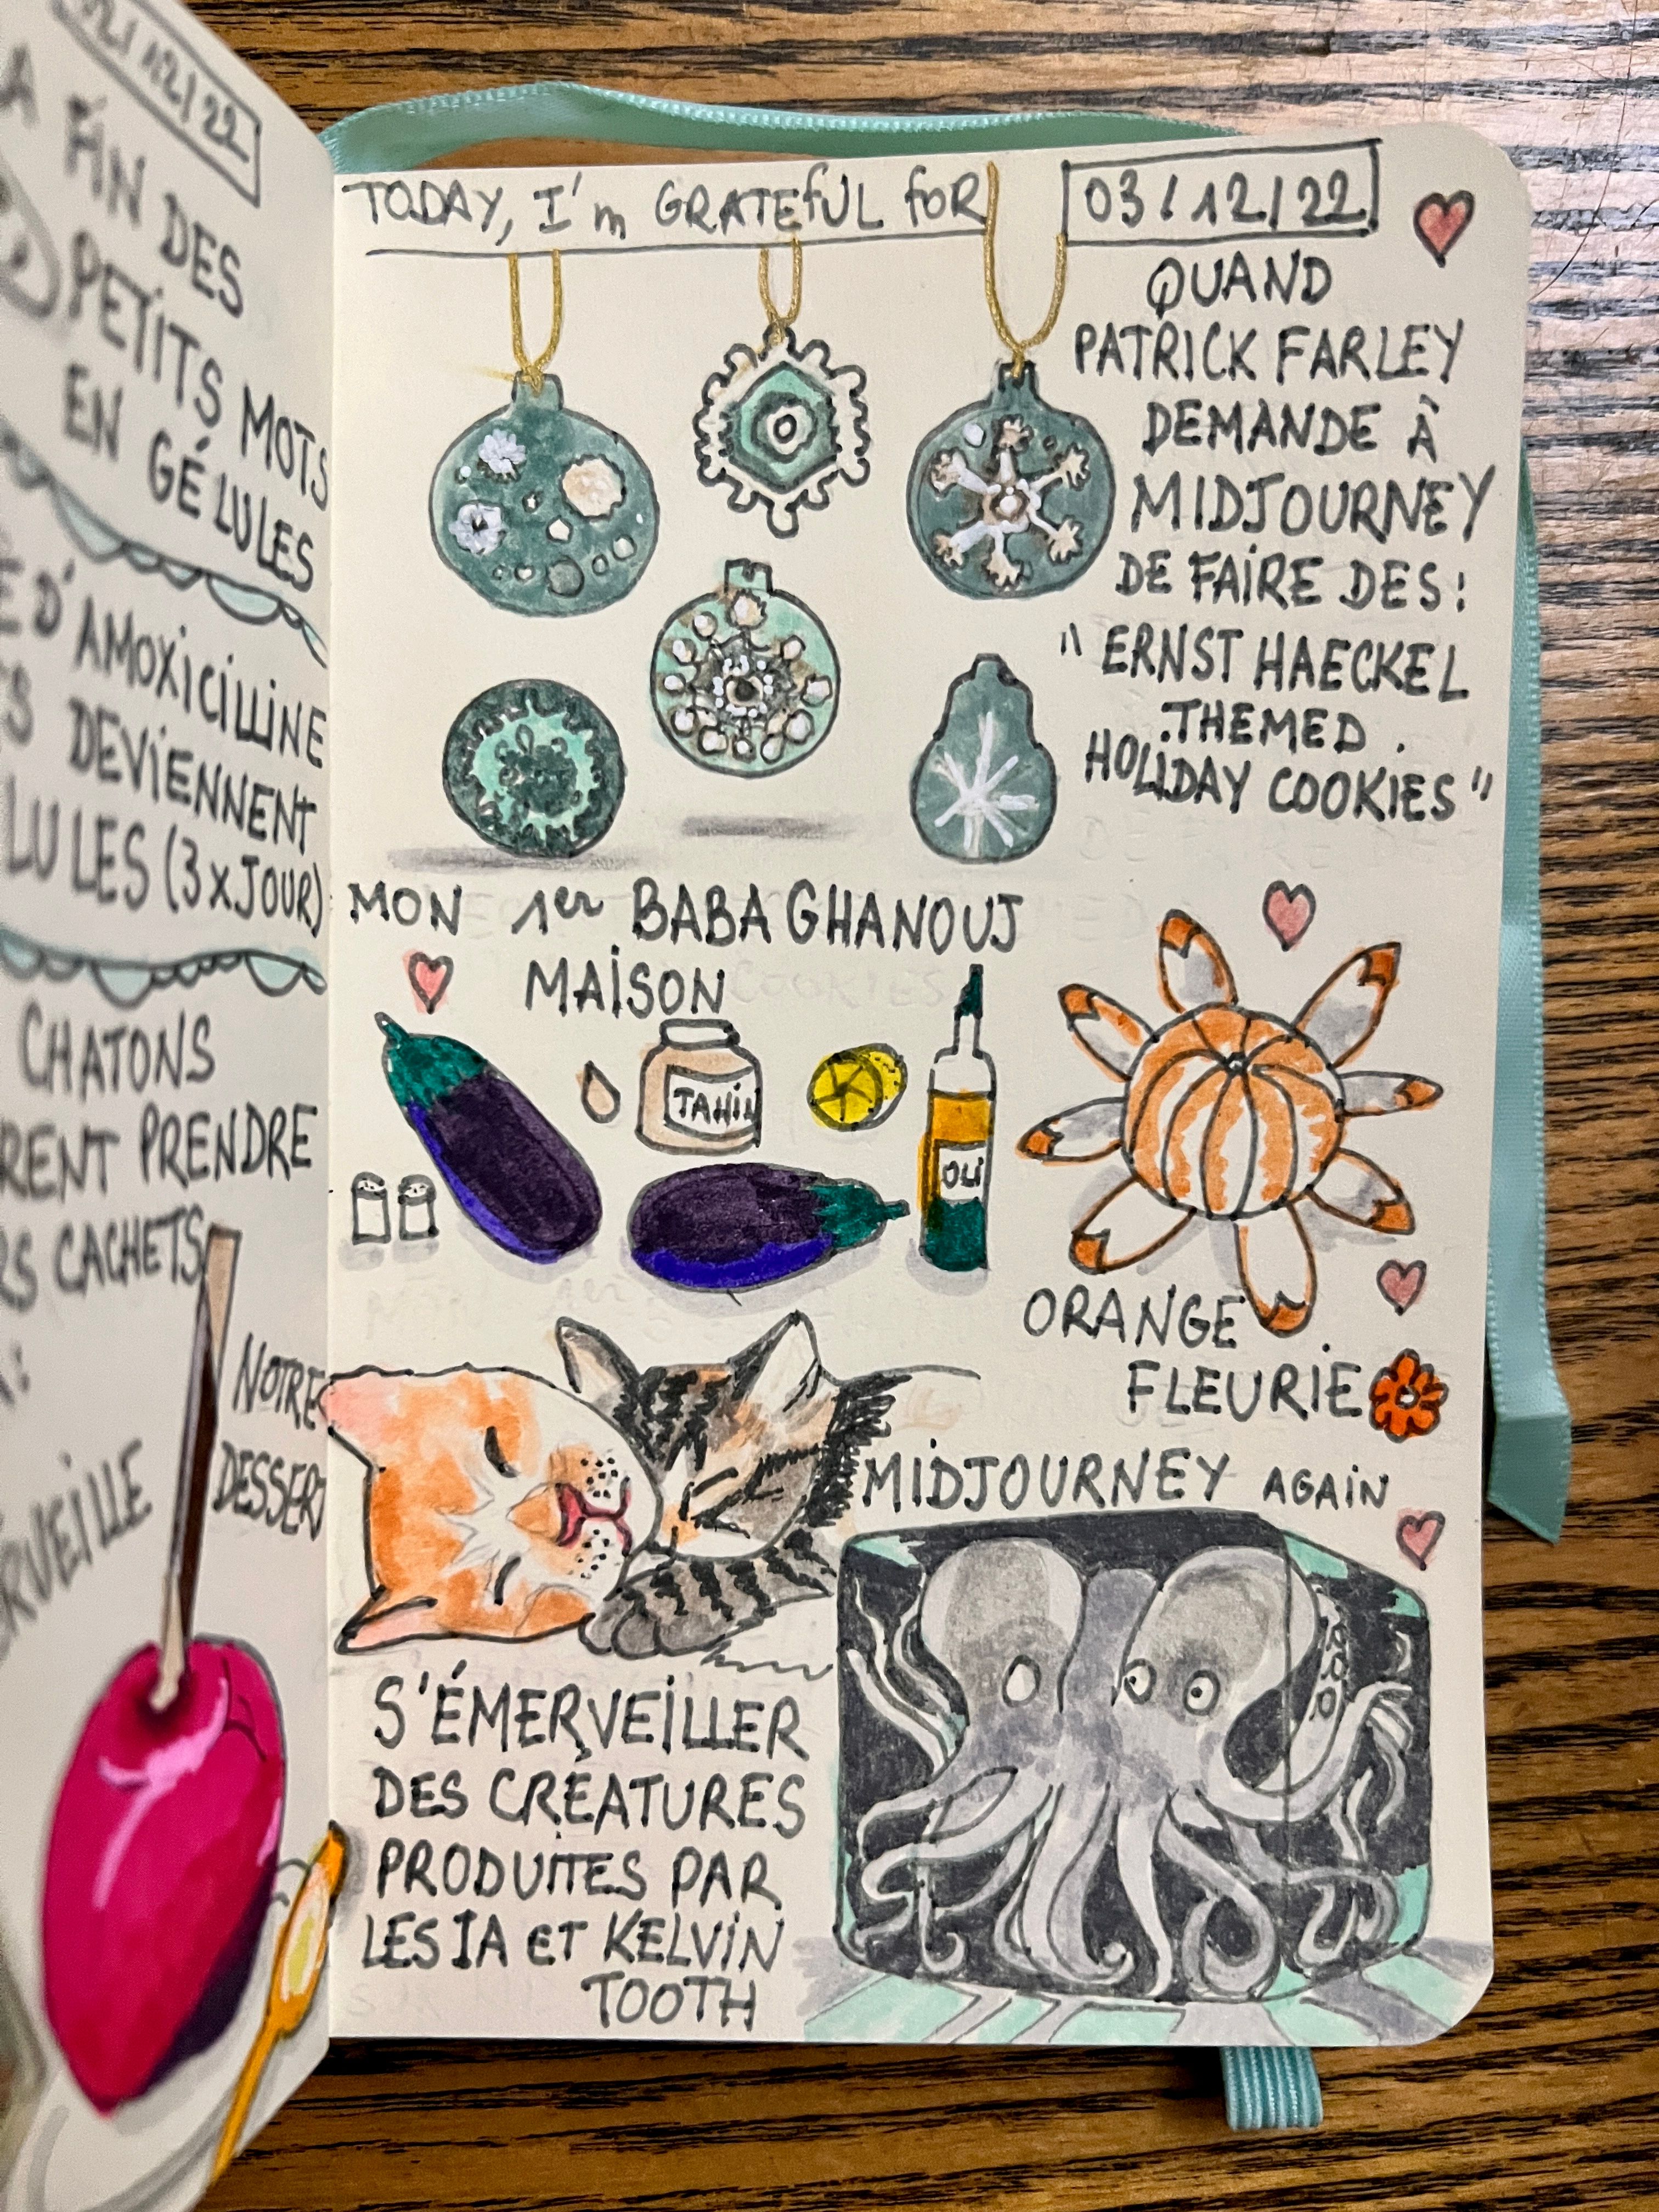 12/22
FIN DES
PETITS MOTS
EN GÉLULES
D'AMOXICILLINE
DEVIENNENT
(3 x JOUR)
CHATONS
PRENDRE
CACHETS
NOTRE
DESSERT
TODAY, I'm GRATEFUL FOR
03/12/22
QUAND
PATRICK FARLEY
DEMANDE À
MIDJOURNEY
DE FAIRE DES :
"ERNST HAECKEL
THEMED
HOLIDAY COOKIES"
MON 1er BABA GHANOUJ
MAISON
TAHIN
OLI
ORANGE
FLEURIE
MIDJOURNEY AGAIN
S'ÉMERVEILLER
DES CRÉATURES
PRODUITES PAR
LES IA ET KELVIN
TOOTH